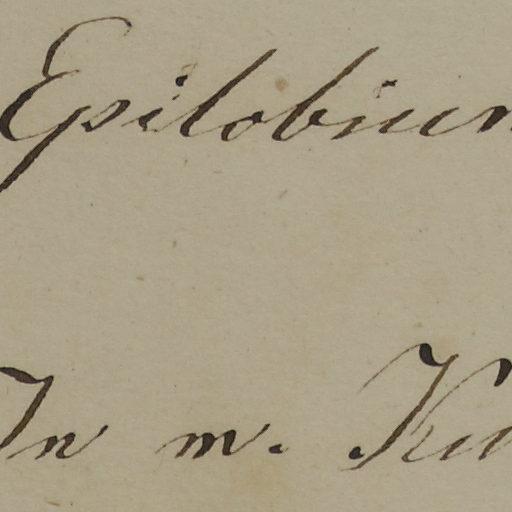 Epilobium
In m. Ku